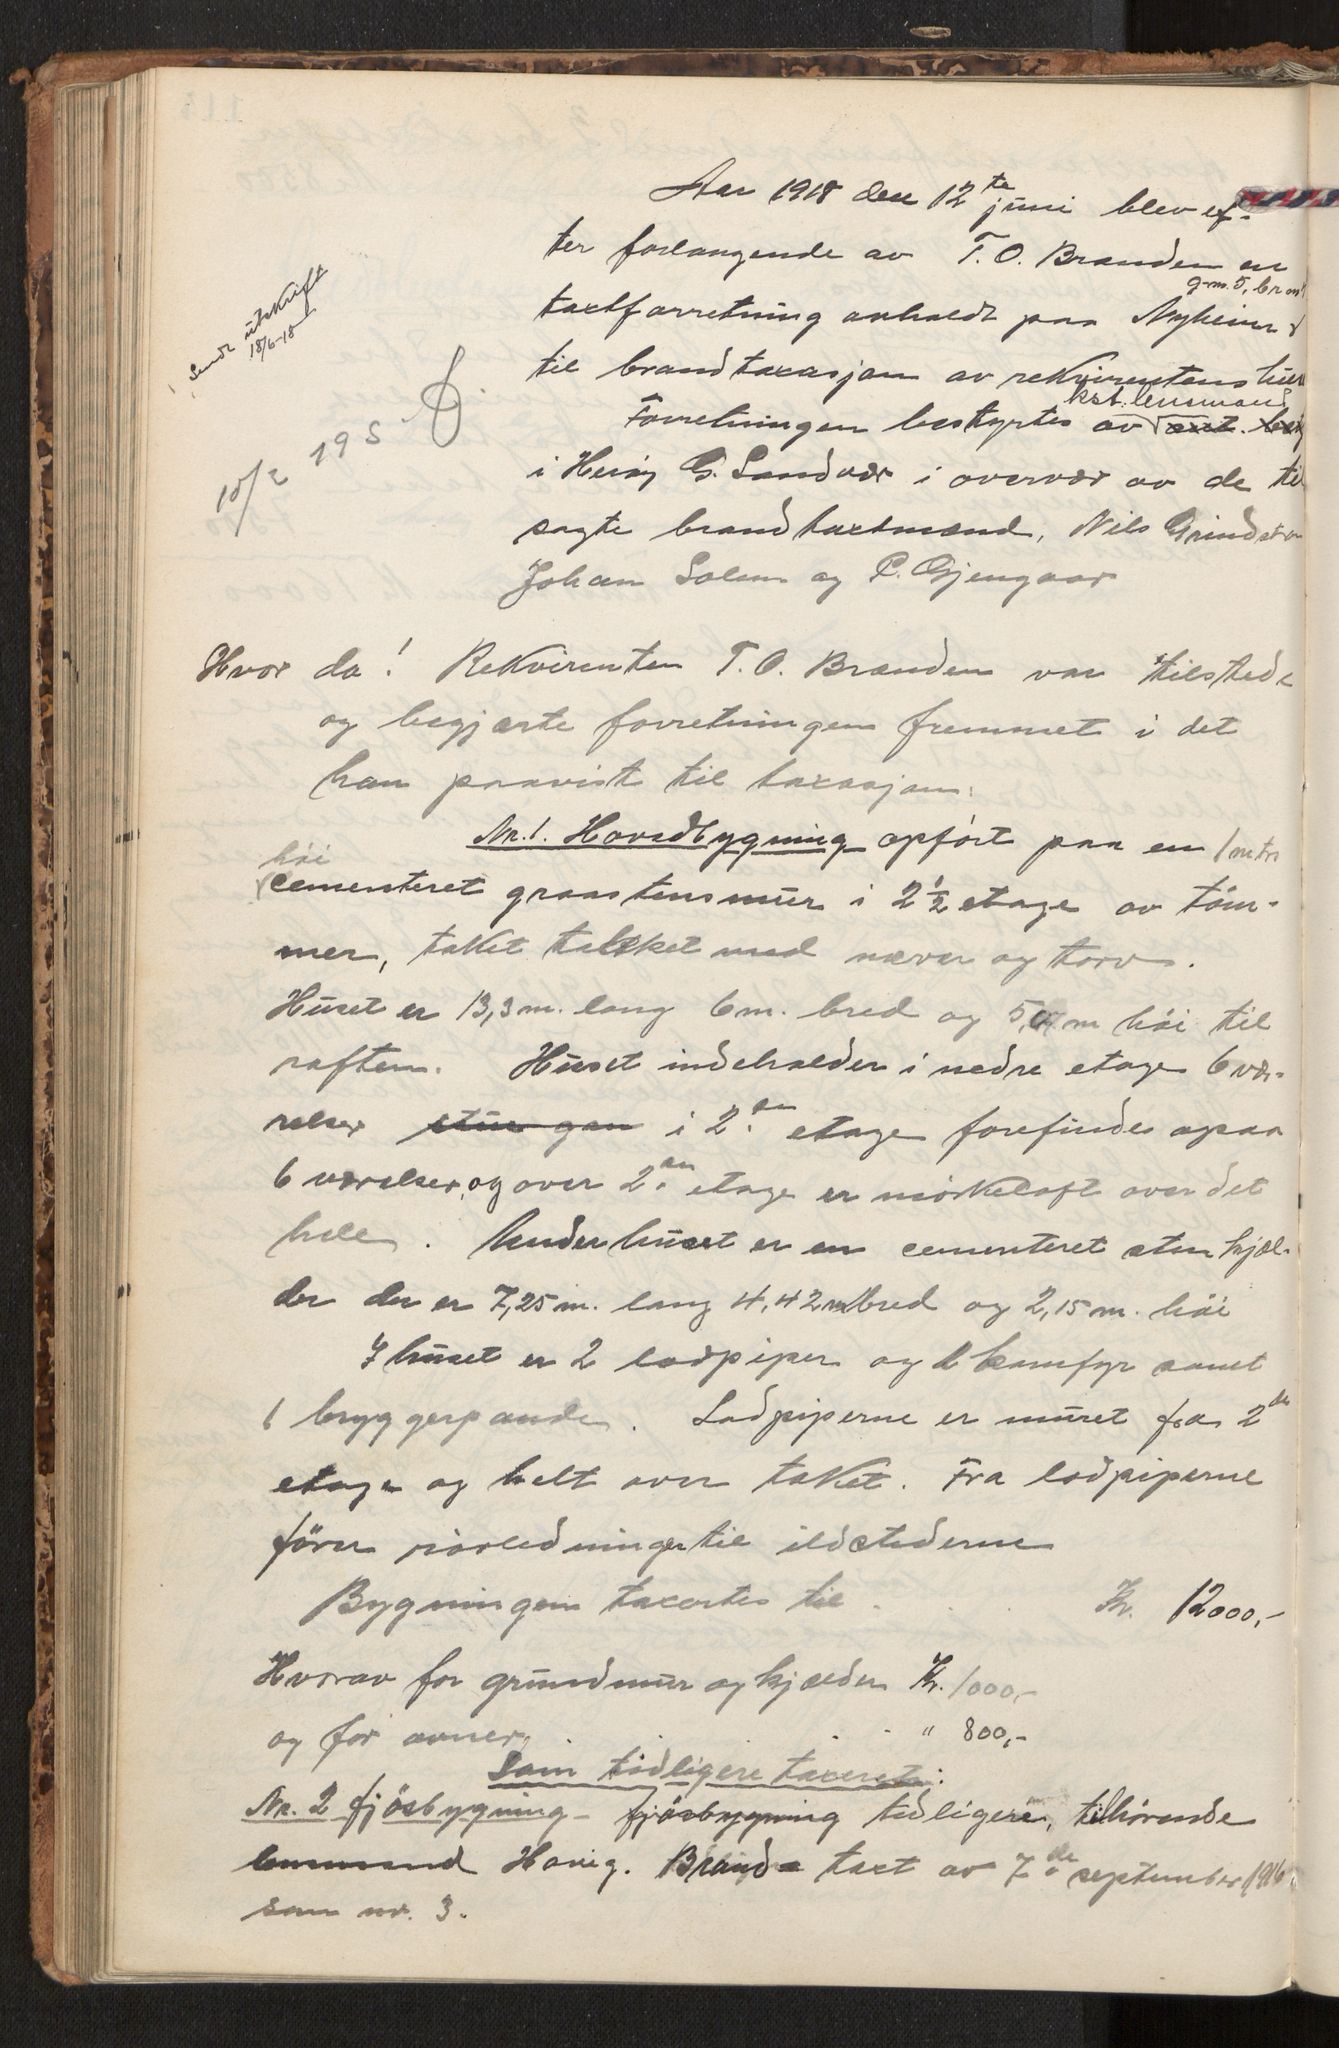 Aar 1918 den 12te juni blev ef-
ter forlangende av T. O. Branden en
g-nr. 5, br nr
taxtforretning avholdt paa Nyheim
til brandtaxasjon av rekvirentens hus
kst. lensmand
Forretningen bestyrtes av
i Herøy G. Sandvær i overvær av de til
sagte brandtaxtmænd, Nils Grindstr
Johan Solem og P. Gjengaar
Sendt utskrift
18/6-18
10/2 195
Hvor da! Rekvirenten T. O. Branden var tilstede
og begjærte forretningen fremmet i det
han paavist til taxasjon:
Nr. 1. Hovedbygning opført paa en 1 mtr
høi
cementeret graastensmur i 2½ etage av tøm-
mer, taket tækket med næver og torv.
Huset er 13,3 m. lang 6 m. bred og m høi til
raften. Huset indeholder i nedre etage 6 væ-
relser i 2den etage forefindes opsaa
6 værelser, og over 2den etage er mørkeloft over det
hele. Under huset er en cementeret sten kjæl-
der der er 7,25 m. lang 4,42 m bred og 2,15 m. høi
I huset er 2 lodpiper og komfyr samt
1 bryggerpande. Lodpiperne er muret fra 2den
etage og helt over taket. Fra lodpiperne
fører rørledninger til ildstederne
Bygningen taxertes til . . . Kr. 12000,-
Hvorav for grundmur og kjælder Kr. 1000,-
og for ovner . . " 800,-
Som tidligere taxeret:
Nr. 2 fjøsbygning - fjøsbygning tidligere, tilhørende
lensmand Havig. Brand taxt av 7de september 1916
som nr. 3.